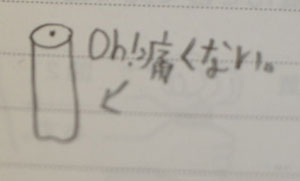 Oh!痛くない。